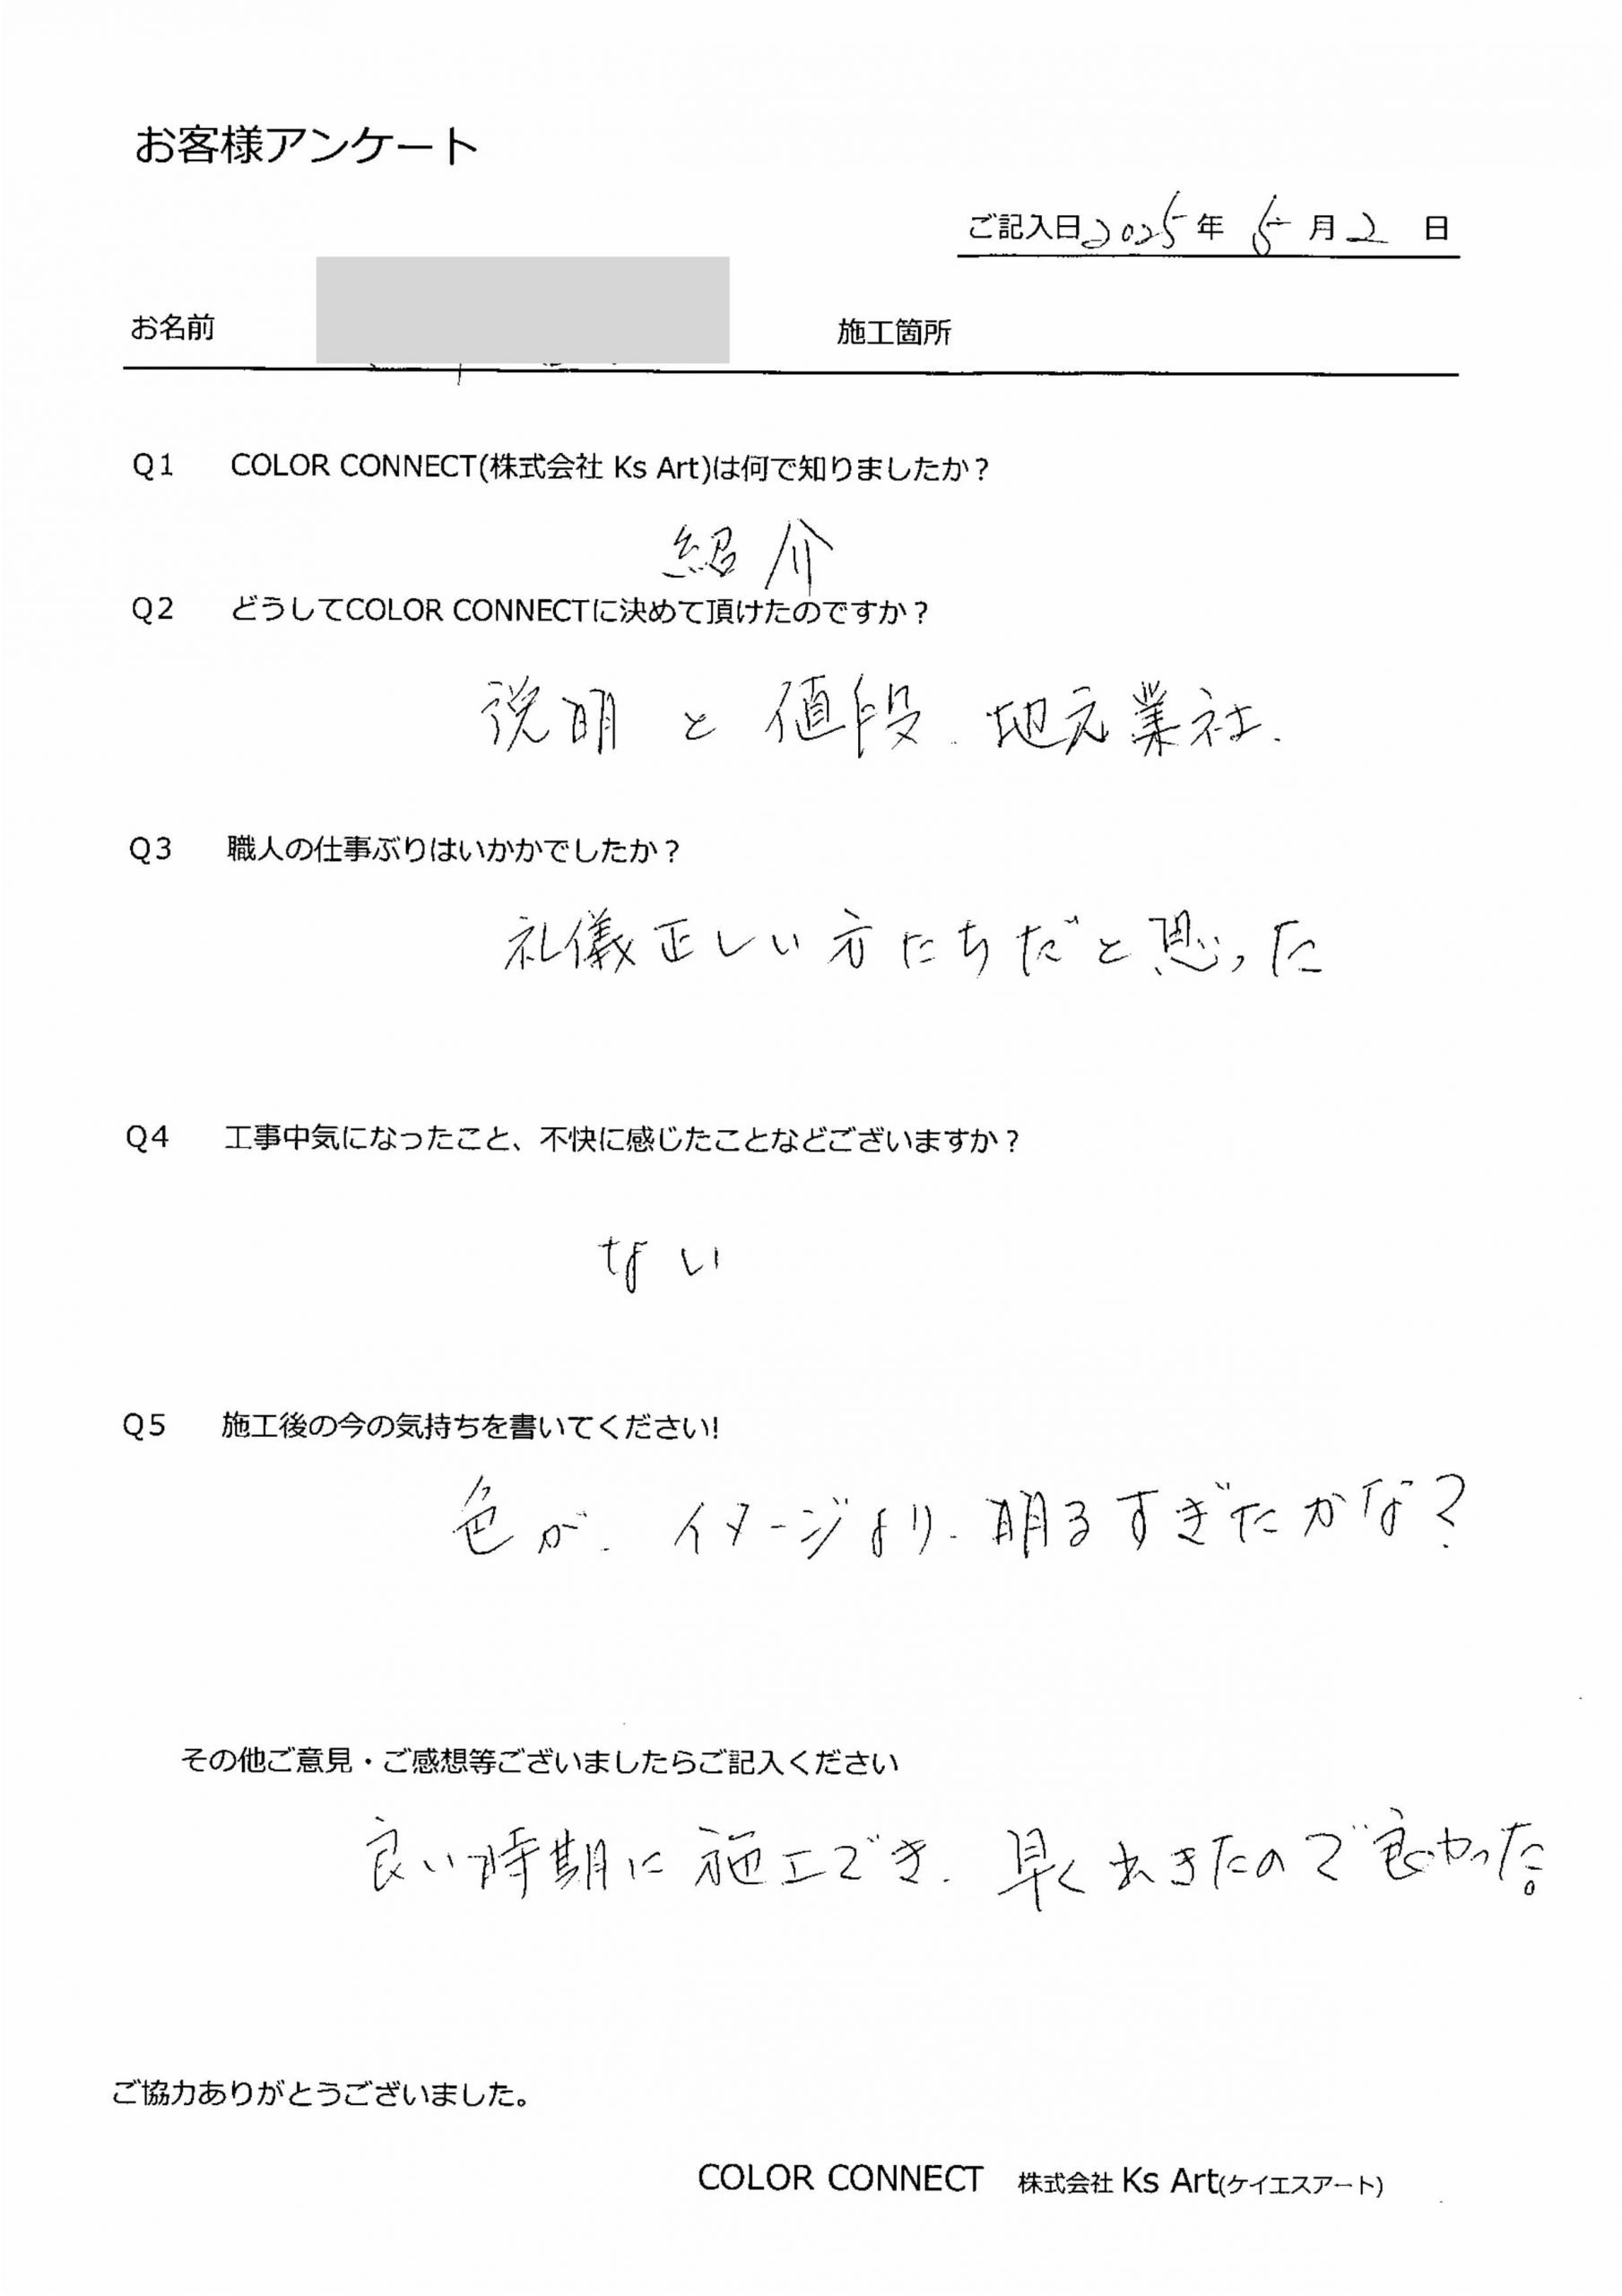 お客様アンケート
ご記入日2025年 5月2 日
お名前 施工箇所
Q1 COLOR CONNECT(株式会社 Ks Art)は何で知りましたか？
紹介
Q2 どうしてCOLOR CONNECTに決めて頂けたのですか？
説明 と 値段. 地元業社.
Q3 職人の仕事ぶりはいかかでしたか？
礼儀正しい方たちだと思った
Q4 工事中気になったこと、不快に感じたことなどございますか？
ない
Q5 施工後の今の気持ちを書いてください!
色が. イメージより. 明るすぎたかな？
その他ご意見・ご感想等ございましたらご記入ください
良い時期に施工でき. 早く出きたので良かった。
ご協力ありがとうございました。
COLOR CONNECT 株式会社 Ks Art(ケイエスアート)